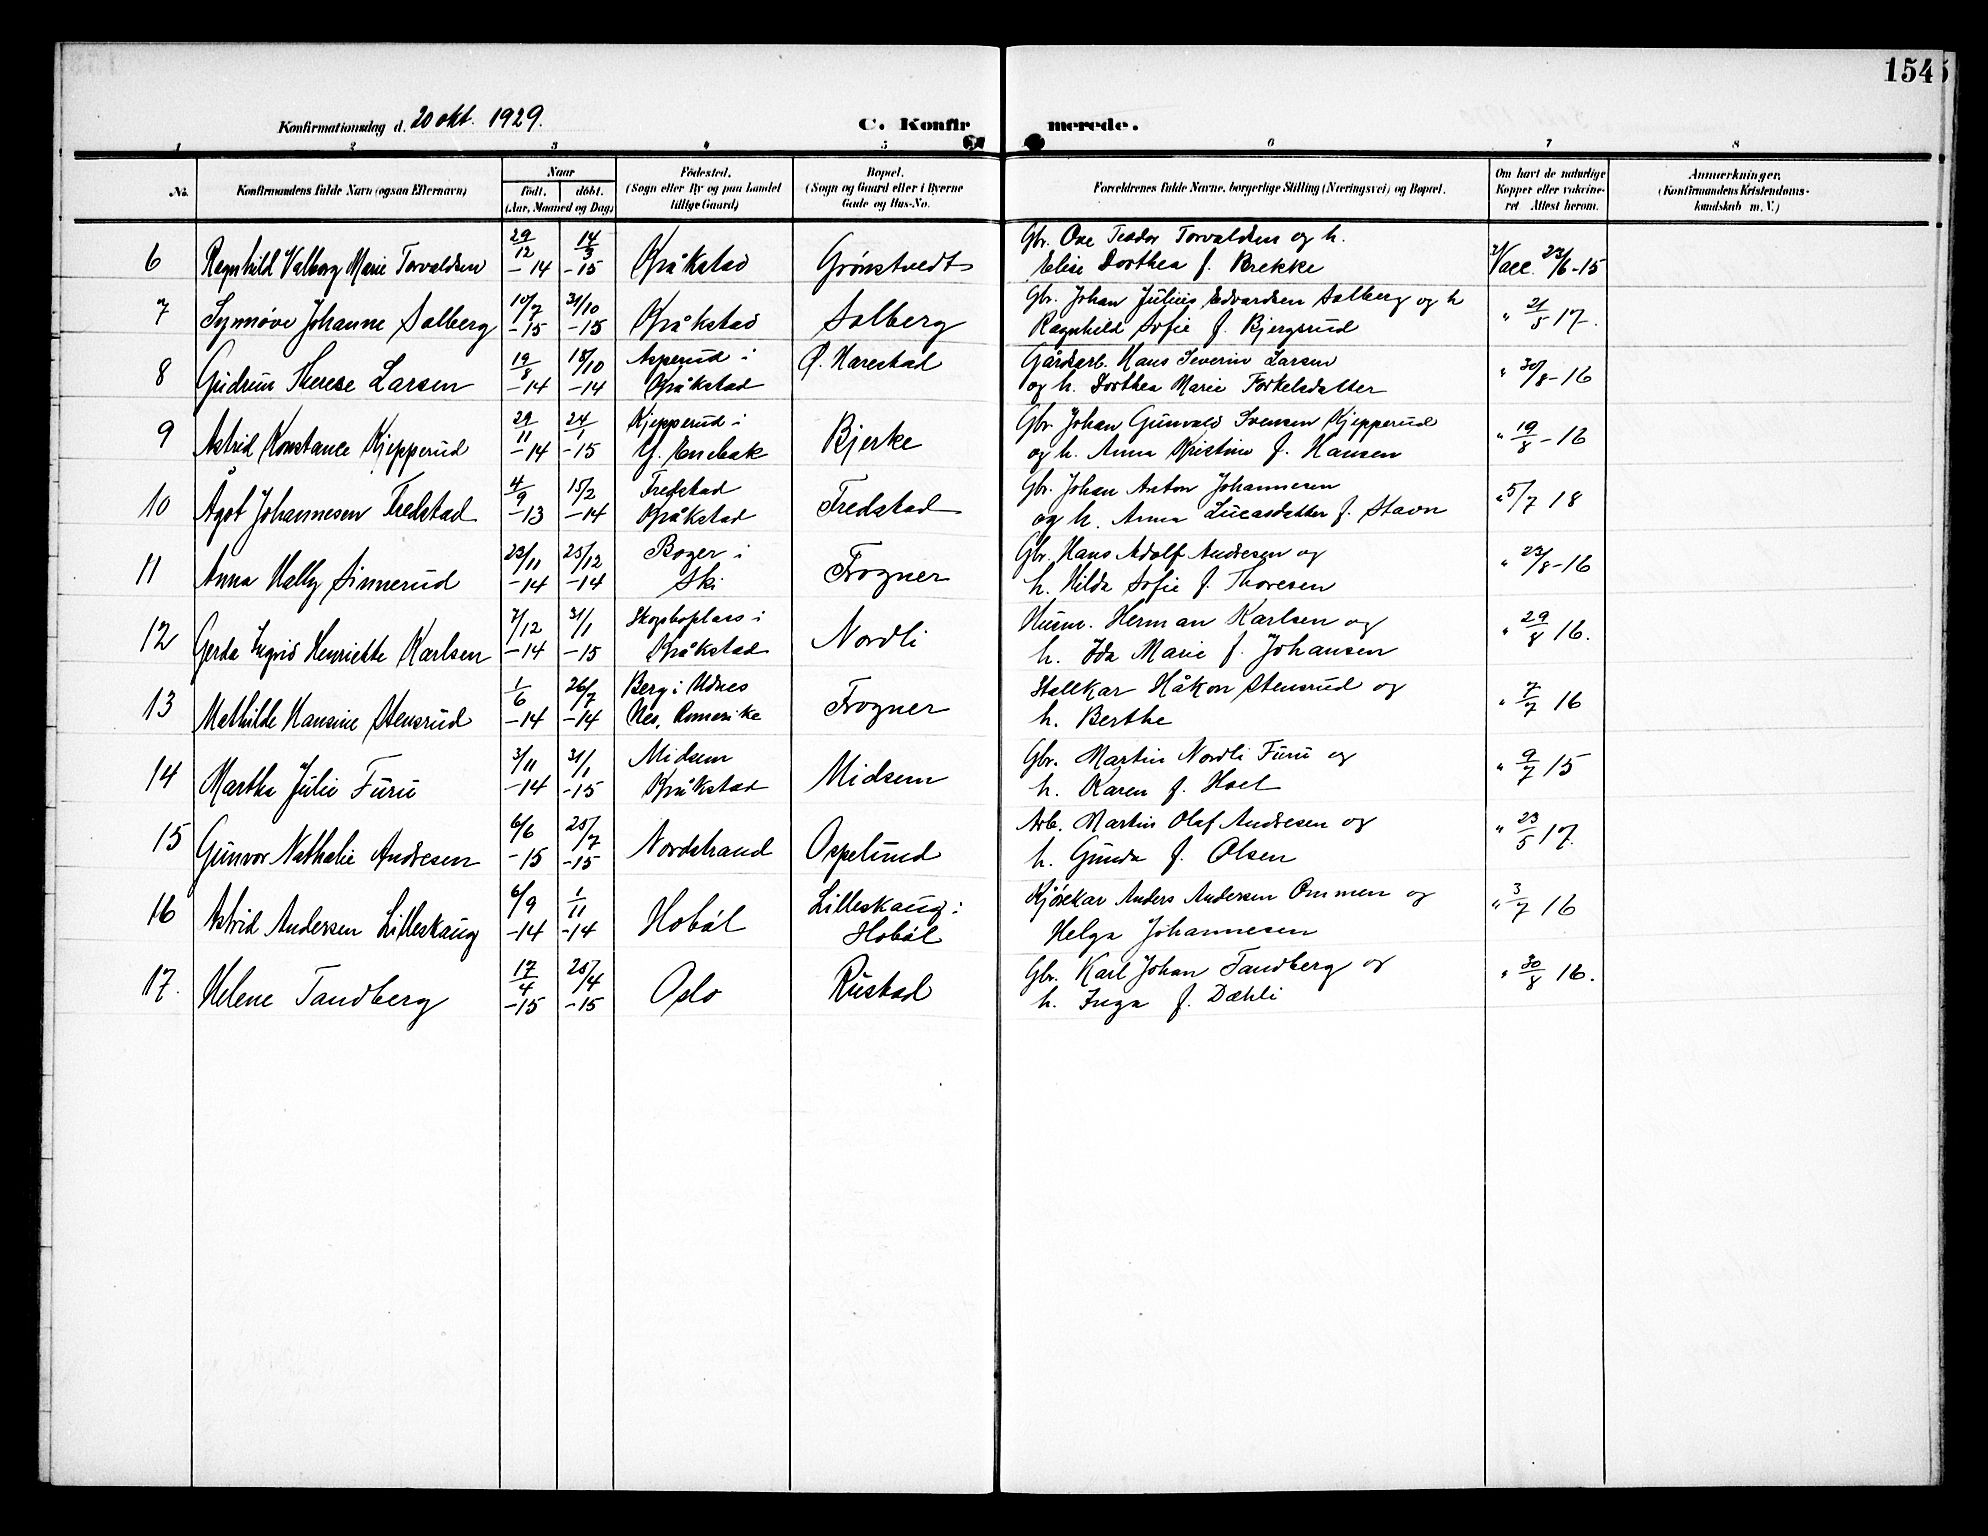 1545
Konfirmationsdag d. 20 okt. 1929.
C. Konfirmerede.
1 2 3 4 5 6 7 8
No. Konfirmandens fulde Navn (ogsaa Efternavn) Naar født. døbt. (Aar, Maaned og Dag) Fødested. (Sogn eller By og paa Landet tillige Gaard) Bopæl. (Sogn og Gaard eller i Byerne Gade og Hus-No. Forældrenes fulde Navne, borgerlige Stilling (Næringsvei) og Bopæl. Om havt de naturlige Kopper eller vakcineret. Attest herom. Anmærkninger. (Konfirmandens Kristendomskundskab m. V.)
6 Ragnhild Valborg Marie Torvaldsen 29/12 -14 14/3 -15 Kråkstad Grønstvedt Gbr. Ove Teodor Torvaldsen og h. Elise Dorthea f. Brekke Vacc. 22/6-15
7 Synnøve Johanne Solberg 10/7 -15 31/10 -15 Kråkstad Solberg Gbr. Johan Julius Edvardsen Solberg og h Ragnhild Sofie f. Bjergsrud " 21/5 17.
8 Gudrun Therese Larsen 19/8 -14 18/10 -14 Asperud i Kråkstad Ø. Harestad Gårdsarb. Hans Severin Larsen og h. Dorthea Marie Torkelsdatter " 30/8-16
9 Astrid Konstance Kjepperud 29/11 -14 24/1 -15 Kjepperud i Y. Enebak Bjerke Gbr. Johan Gunvald Svensen Kjepperud og h. Anna Kristine f. Hansen " 19/8-16
10 Ågot Johannesen Fredstad 4/9 -13 15/2 -14 Fredstad Kråkstad Fredstad Gbr. Johan Anton Johannesen og h. Anna Lucasdatter f. Stavn " 5/7 18
11 Anna Hally Sinnerud 23/11 -14 25/12 -14 Boger i Ski Frogner Gbr. Hans Adolf Andresen og h. Hilda Sofie f. Thoresen " 23/8-16
12 Gerda Ingrid Henriette Karlsen 7/12 -14 31/1 -15 Skogsboplass i Kråkstad Nordli Husm. Herman Karlsen og h. Ida Marie f. Johansen " 29/8 16.
13 Mathilde Hansine Stensrud 1/6 -14 26/7 -14 Berg i Udnes Nes, Romerike Frogner Stallkar Håkon Stensrud og h. Berthe " 7/7 16
14 Martha Julie Furu 3/11 -14 31/1 -15 Midsem Kråkstad Midsem Gbr. Martin Nordli Furu og h. Karen f. Hoel " 9/7 15
15 Gunvor Nathalie Andresen 6/6 -15 25/7 -15 Nordstrand Ospelund Arb. Martin Olaf Andresen og h. Gunda f. Olsen " 23/5 17.
16 Astrid Andersen Lilleskaug 6/9 -14 1/11 -14 Hobøl Lilleskaug i Hobøl Kjørekar Anders Andersen Ommen og Helga Johannesen " 3/7 16
17. Helene Tandberg 17/4 -15 25/4 -15 Oslo Rustad Gbr. Karl Johan Tandberg og h. Inga f. Dæhli " 30/8 16.